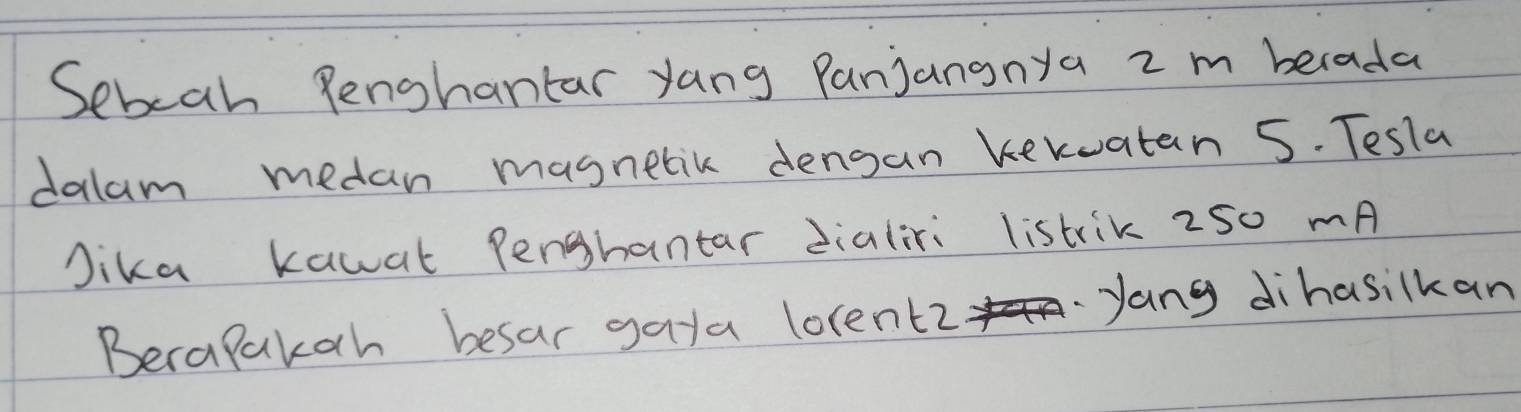 Sebuah Penghantar yang Panjangnya 2 m berada
dalam medan magnetik dengan kekuatan 5. Tesla
Jika kawat Penghantar dialiri listrik 250 mA
Berapakah besar gaya lorentz yang dihasilkan